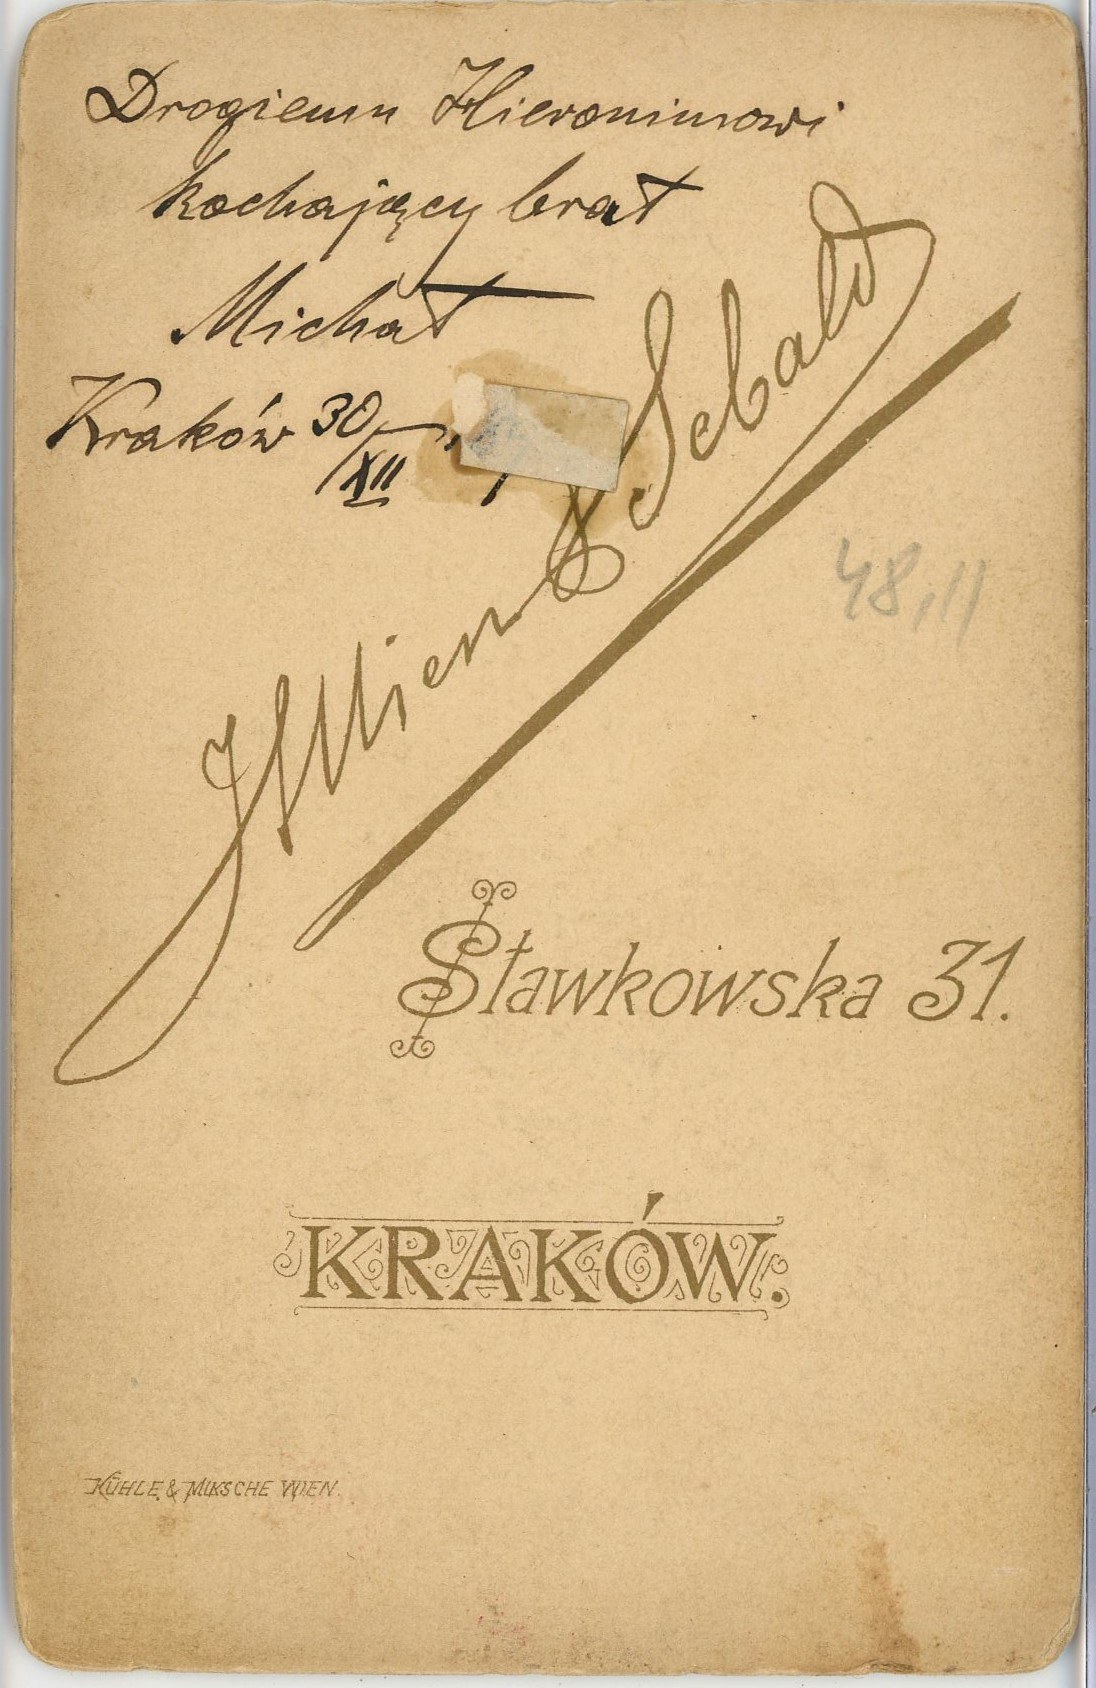 Drogiemu Hieronimowi
kochający brat
Michał
Kraków 30/XII
J Mien & Sebald
48,11
Sławkowska 31.
KRAKÓW.
KÜHLE & MIKSCHE WIEN.